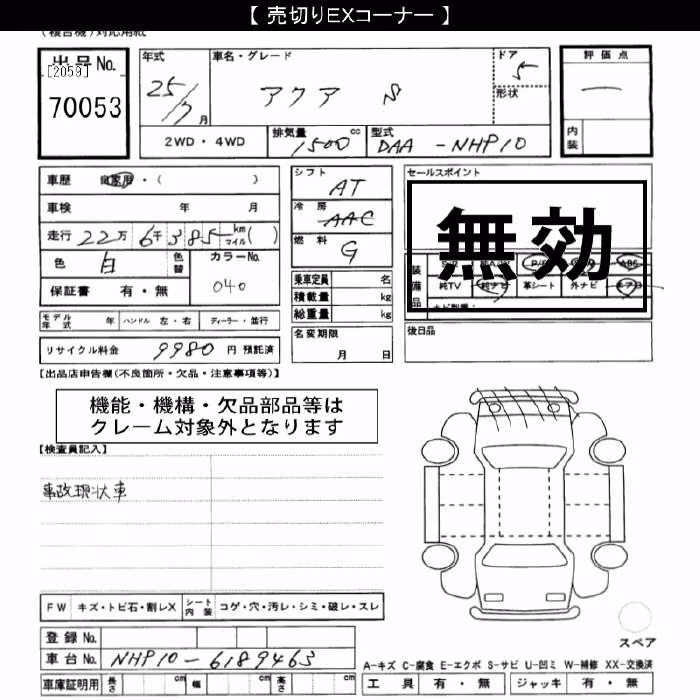 【 売切りEXコーナー 】
(複合機)対応用紙
出品No.
[2059]
70053
年式
25/7月
車名・グレード
アクア S
ドア
5
形状
評価点
内装
2WD・4WD
排気量
1500cc
型式
DAA-NHP10
車歴 自家用・( )
車検 年 月
走行 22万6千385 km マイル( )
色 白 色替 カラーNo. 040
保証書 有・無
モデル年式 年 ハンドル 左・右 ディーラー・並行
リサイクル料金 9980 円 預託済
シフト AT
冷房 AAC
燃料 G
乗車定員 名
積載量 kg
総重量 kg
名変期限 月 日
セールスポイント
無効
装備品
純TV 純ナビ 革シート 外ナビ エアB
後日品
【出品店申告欄(不良箇所・欠品・注意事項等)】
機能・機構・欠品部品等は
クレーム対象外となります
【検査員記入】
事故現状車
FW キズ・トビ石・割レX シート内装 コゲ・穴・汚レ・シミ・破レ・スレ
登録No.
車台No. NHP10-6189463
車庫証明用 長さ cm 幅 cm 高さ cm
スペア
A-キズ C-腐食 E-エクボ S-サビ U-凹ミ W-補修 XX-交換済
工具 有・無 ジャッキ 有・無